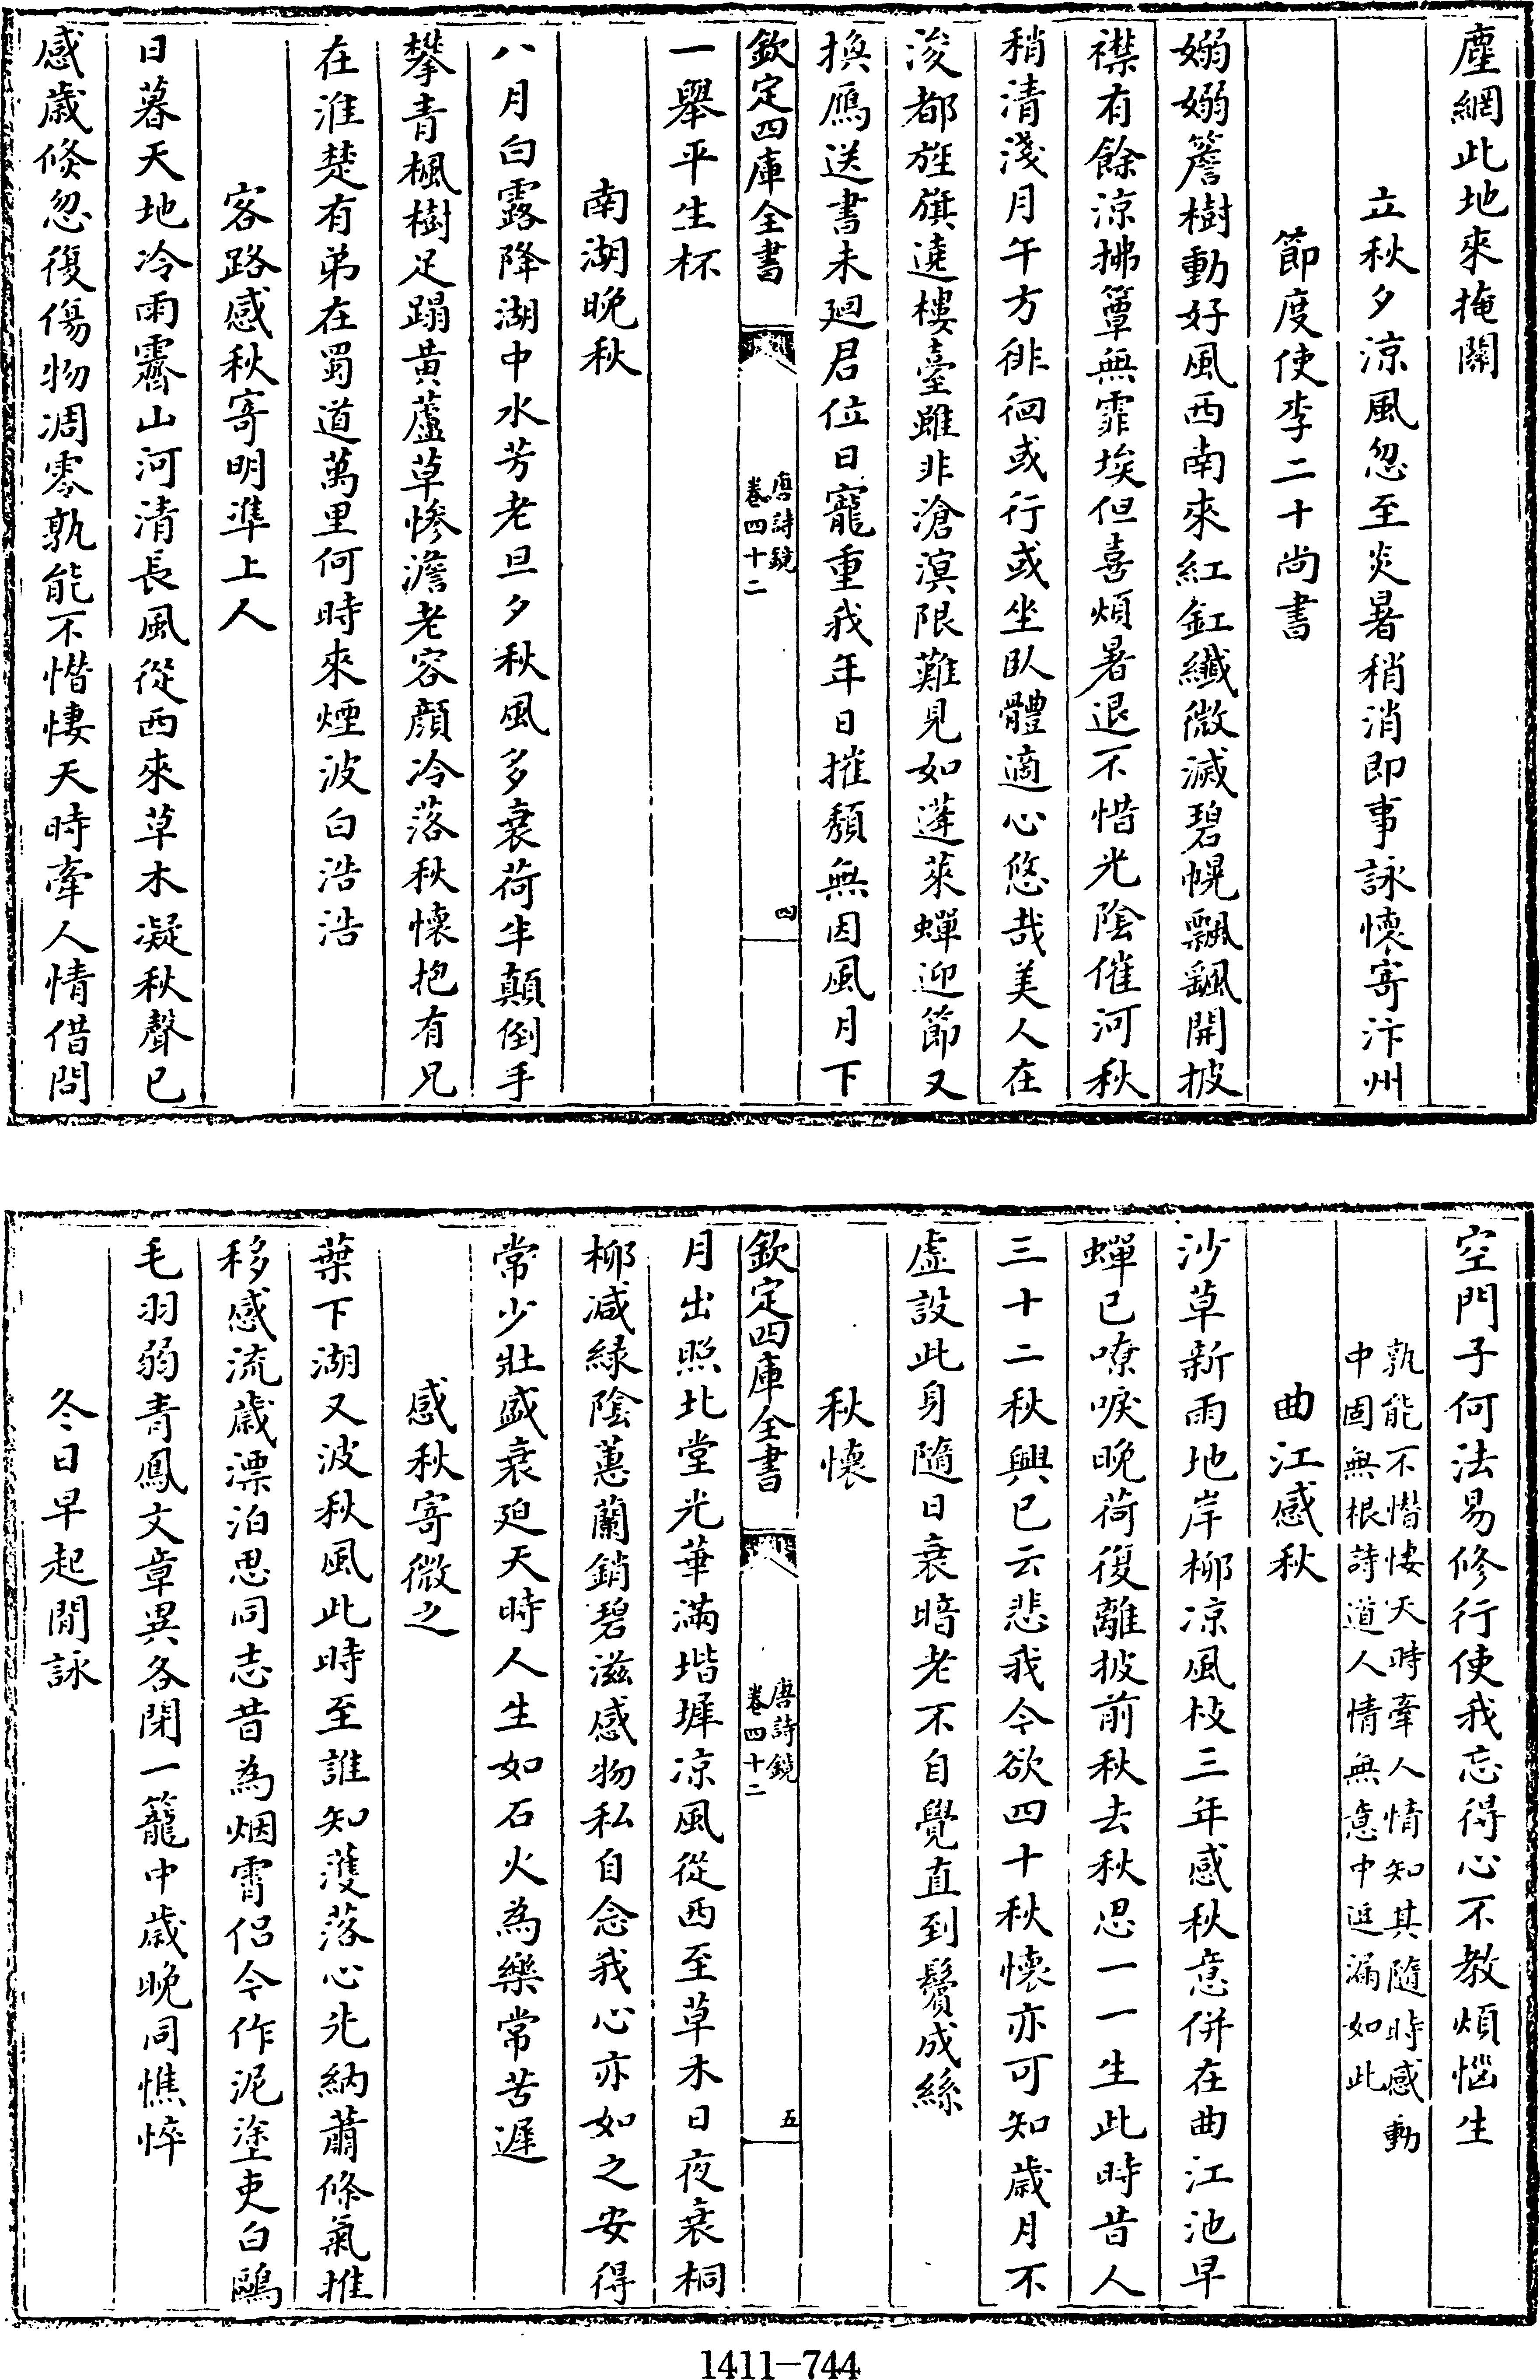 塵網此地來掩關
立秋夕涼風忽至炎暑稍消即事詠懷寄汴州
節度使李二十尚書
嫋嫋簷樹動好風西南來紅缸纖微滅碧幌飄颻開披
襟有餘涼拂簟無霏埃但喜煩暑退不惜光陰催河秋
稍清淺月午方徘徊或行或坐臥體適心悠哉美人在
浚都旌旗遶樓臺雖非滄溟限難見如蓬萊蟬迎節又
換鴈送書未廻君位日寵重我年日摧頽無因風月下
欽定四庫全書
唐詩鏡
卷四十二
四
一舉平生杯
南湖晚秋
八月白露降湖中水芳老旦夕秋風多衰荷半顛倒手
攀青楓樹足蹋黃蘆草慘澹老容顔冷落秋懷抱有兄
在淮楚有弟在蜀道萬里何時來煙波白浩浩
客路感秋寄明準上人
日暮天地冷雨霽山河清長風從西來草木凝秋聲已
感歲倐忽復傷物凋零孰能不憯悽天時牽人情借問
空門子何法易修行使我忘得心不教煩惱生
孰能不憯悽天時牽人情知其隨時感動
中固無根詩道人情無意中逗漏如此
曲江感秋
沙草新雨地岸柳涼風枝三年感秋意併在曲江池早
蟬已嘹唳晚荷復離披前秋去秋思一一生此時昔人
三十二秋興已云悲我今欲四十秋懷亦可知歲月不
虛設此身隨日衰暗老不自覺直到鬢成絲
秋懷
欽定四庫全書
唐詩鏡
卷四十二
五
月出照北堂光華滿堦墀涼風從西至草木日夜衰桐
柳减綠陰蕙蘭銷碧滋感物私自念我心亦如之安得
常少壯盛衰迫天時人生如石火為樂常苦遲
感秋寄微之
葉下湖又波秋風此時至誰知濩落心先納蕭條氣推
移感流歲漂泊思同志昔為烟霄侣今作泥塗吏白鷗
毛羽弱青鳳文章異各閉一籠中歲晚同憔悴
冬日早起閒詠
1411-744